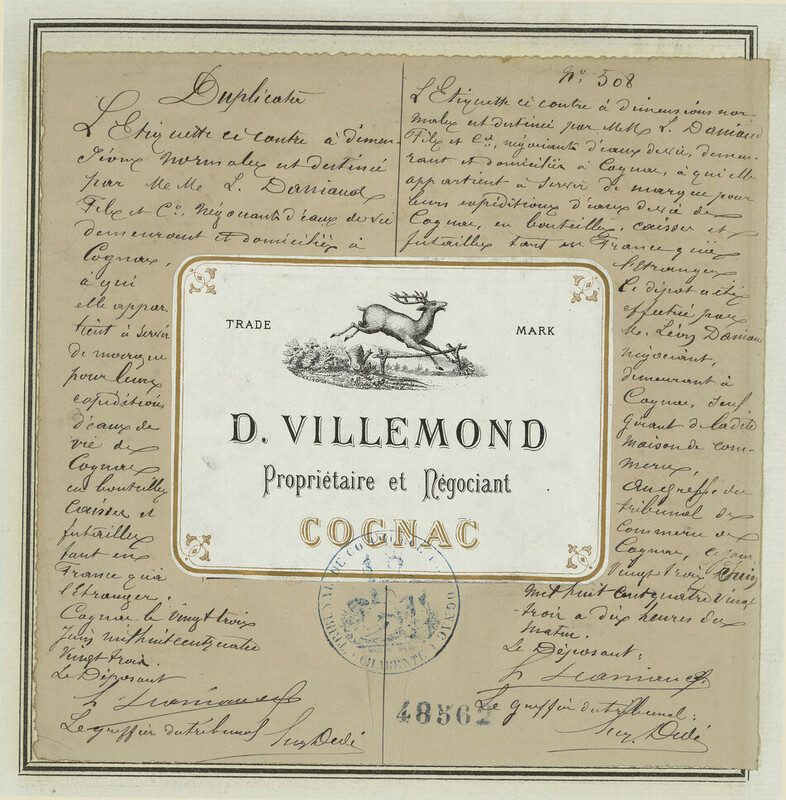 Duplicata
L'Etiquette ci contre à dimen-
sions normales est destinée
par MM. L. Daniaud
Filx et Cie, négociants d'eaux de vie
demeurant et domiciliés à
Cognac,
à qui
elle appar-
tient à servir
de marque
pour leurs
expéditions
d'eaux de
vie de
Cognac
en bouteilles
caisses et
futailles
tant en
France qu'à
l'Etranger.
Cognac le vingt trois
Juin mil huit cent quatre
vingt trois.
Le Déposant
L Daniaud
Le greffier du tribunal
No 508
L'Etiquette ci contre à dimensions nor-
males est destinée par MM. L. Daniaud
Filx et Cie, négociants d'eaux de vie, demeu-
rant et domiciliés à Cognac, à qui elle
appartient à servir de marque pour
leurs expéditions d'eaux de vie de
Cognac, en bouteilles, caisses et
futailles tant en France qu'à
l'étranger
Le dépôt a été
effectué par
M. Lévy Daniaud
négociant,
demeurant à
Cognac, seul
gérant de ladite
Maison de com-
merce,
au greffe du
tribunal de
Commerce de
Cognac, ce jour
vingt trois Juin
mil huit cent quatre vingt
trois a dix heures du
matin.
Le Déposant:
L Daniaud
Le greffier du tribunal:
TRADE MARK
D. VILLEMOND
Propriétaire et Négociant
COGNAC
TRIBUNAL DE COMMERCE DE COGNAC
CHARENTE
48562